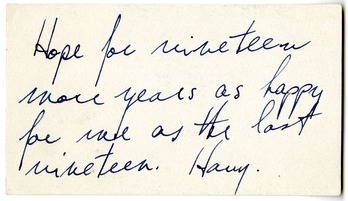 Hope for nineteen
more years as happy
for me as the last
nineteen. Harry.